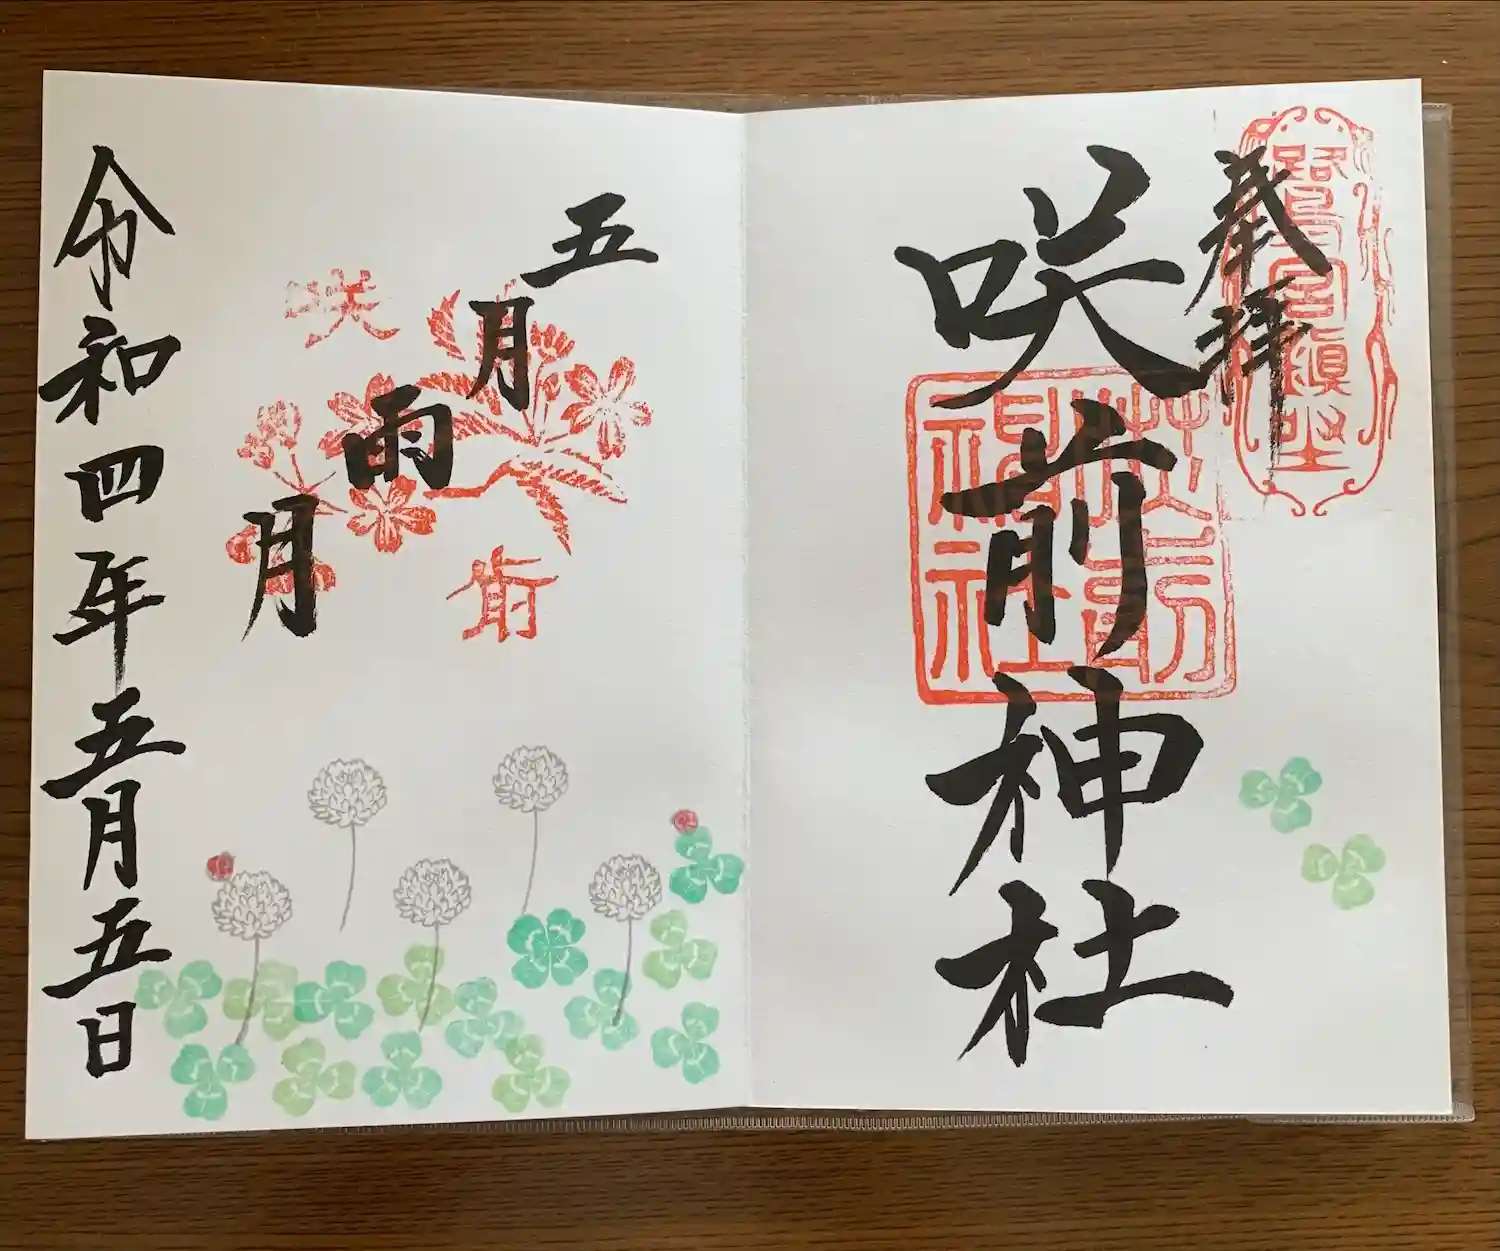 奉拝
咲前神社
五月
雨月
咲
前
令和四年五月五日